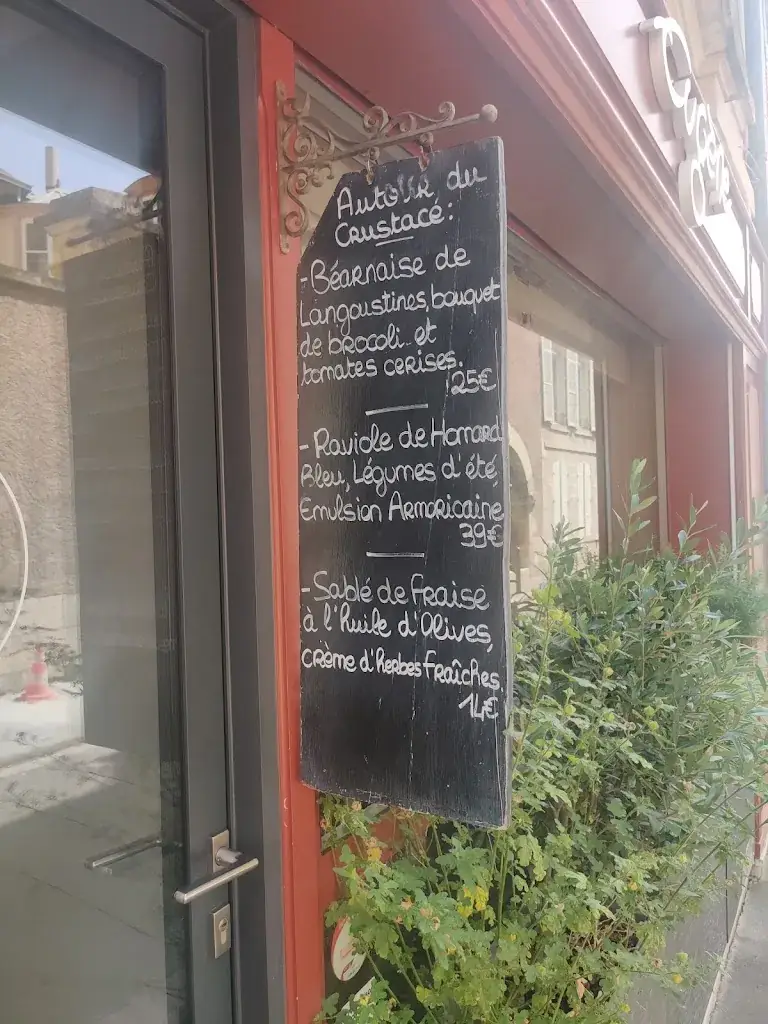 Autour du
Crustacé:
- Béarnaise de
Langoustines, bouquet
de brocoli et
tomates cerises.
25€
- Raviole de Homard
Bleu, Légumes d'été,
Emulsion Armoricaine
39€
- Sablé de Fraise
à l'huile d'Olives,
crème d'herbes fraîches.
14€